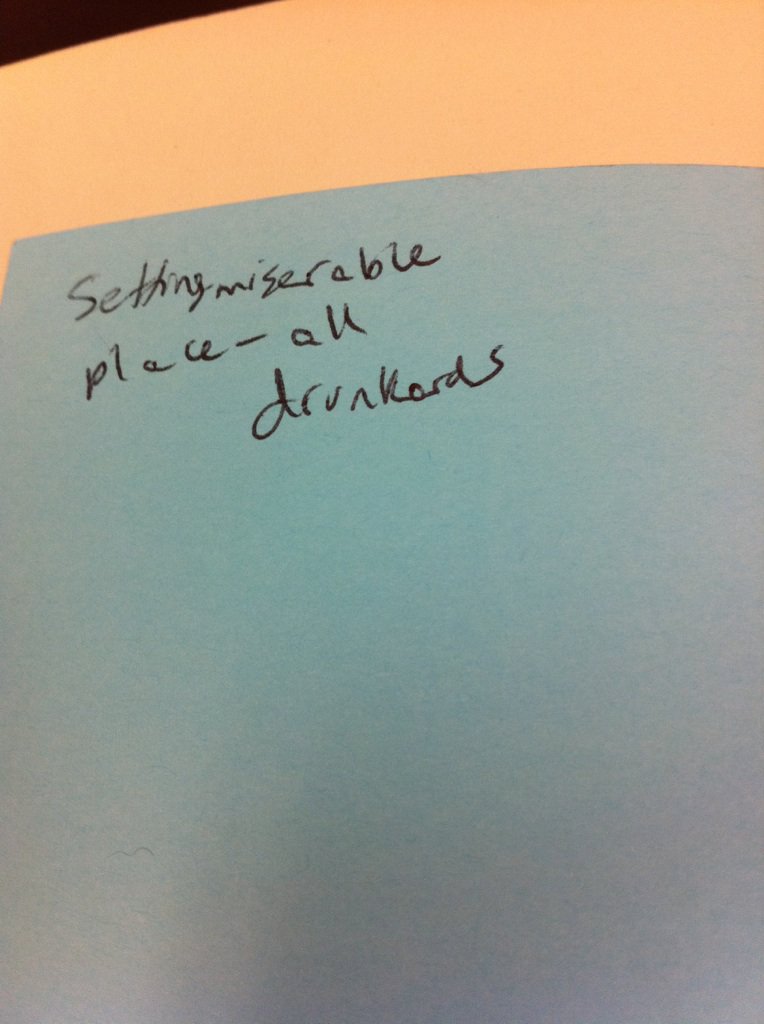 Setting-miserable
place - all
drunkards